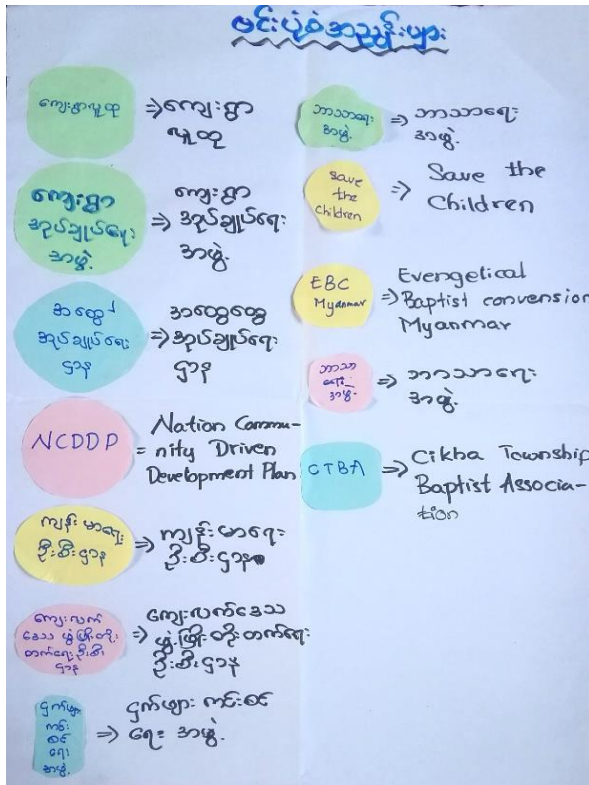 ဗင်းပုံစံအညွှန်းများ
ကျေးရွာလူထု ⇒ ကျေးရွာ
လူထု
ကျေးရွာ
အုပ်ချုပ်ရေး
အဖွဲ့.
⇒ ကျေးရွာ
အုပ်ချုပ်ရေး
အဖွဲ့.
အထွေ
အုပ်ချုပ်ရေး
ဌာန
⇒ အထွေထွေ
အုပ်ချုပ်ရေး
ဌာန
NCDDP
= Nation Commu-
nity Driven
Development Plan
ကျန်းမာရေး
ဦးစီးဌာန
⇒ ကျန်းမာရေး
ဦးစီးဌာန
ကျေးလက်
ဒေသ ဖွံ့ဖြိုးတိုး
တက်ရေးဦးစီး
ဌာန
⇒ ကျေးလက်ဒေသ
ဖွံ့ဖြိုးတိုးတက်ရေး
ဦးစီးဌာန
ငှက်ဖျား
ကင်း
စင်
ရေး
အဖွဲ့.
⇒ ငှက်ဖျား ကင်းစင်
ရေး အဖွဲ့.
ဘာသာရေး
အဖွဲ့.
⇒ ဘာသာရေး
အဖွဲ့.
Save
the
Children
⇒ Save the
Children
EBC
Myanmar
⇒ Evengelical
Baptist convension
Myanmar
ဘာသာ
ရေး
အဖွဲ့.
⇒ ဘာသာရေး
အဖွဲ့.
CTBA
⇒ Cikha Township
Baptist Associa-
tion